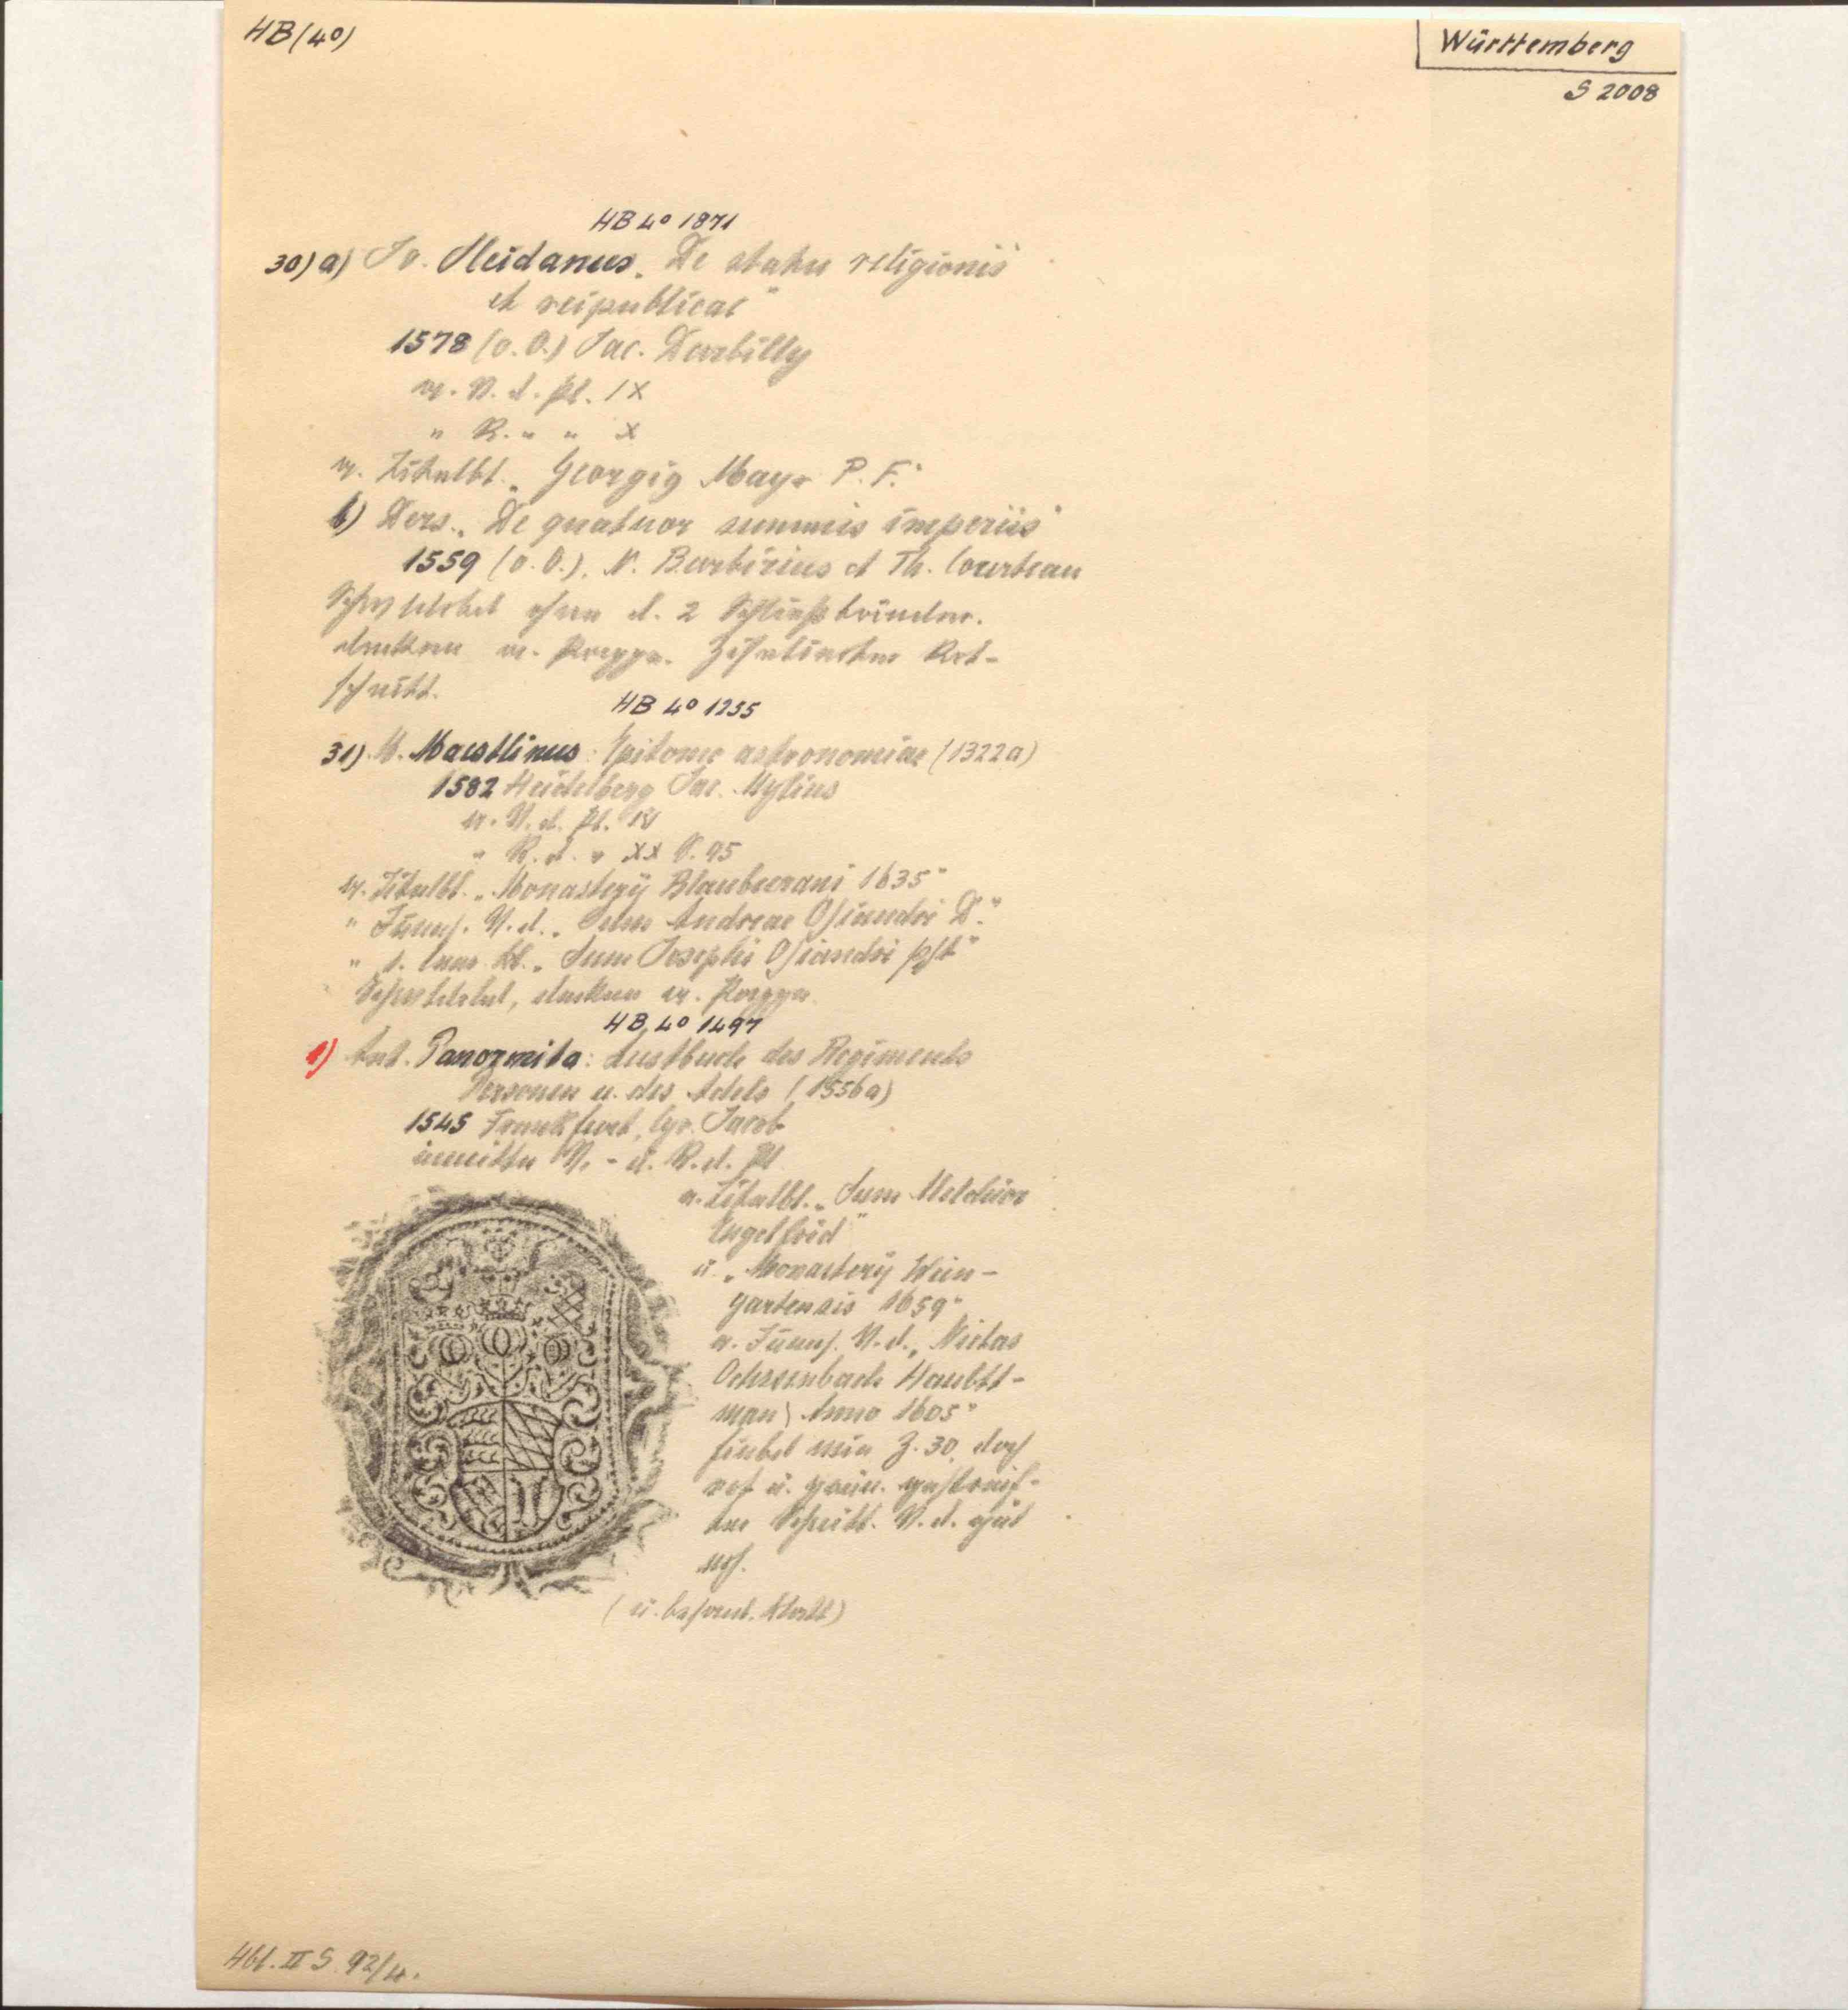 HB (4°)
Württemberg
S 2008
HB 4° 1871
30) a) Jo. Sleidanus „De statu religionis
et reipublicae“
1578 (o. O.) Jac. Derbilly
a. V. d. Pl. IX
" R. " " X
a. Titelbl. „Georgig Mayr P. F.“
b) Ders. „De quatuor summis imperiis“
1559 (o. O.), N. Barbirius et Th. Courteau
Schwsldrbd ohne d. 2 Schließbänder.
Rot-
schnitt.
HB 4° 1255
31) M. Maestlinus: Epitome astronomiae (1322a)
1582 Heidelberg Jac. Mylius
a. V. d. Pl. IV
" R. d. " XX V. 95
a. Titelbl. „Monastery Blaubeerani 1635“
" Innens. V. d. „Sum Andreae Osiandri D.“
" 1. „Sum Josephi Osiandri pst“
HB 4° 1497
1) Ant. Panormita: Lustbuch des Regiments
Personen u. des Adels (1556a)
1545 Frankfurt, Cyr. Jacob
inmitten V. - u. R. d. Pl
a. Titelbl. „Sum Melchior
Engelfrid“
u. „Monastery Wein-
gartensis 1659“
a. Innens. V. d. „Niclas
Ochsenbach Haubtt-
man Anno 1605“
Einbd wie Z. 30, doch
rot u. grün
Schnitt. V. d. gut
(u. besond. Blatt)
Hbl. II S 92/4.